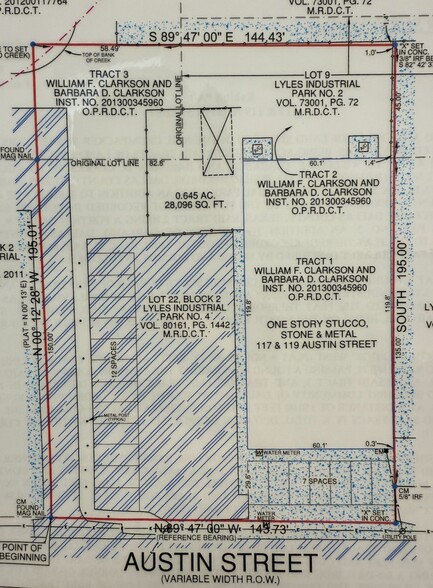 201200117764
O.P.R.D.C.T.
VOL. 73001, PG. 72
M.R.D.C.T.
S 89° 47' 00" E 144.43'
TO SET
CREEK)
58.49'
TOP OF BANK
OF CREEK
1.0'
"X" SET
IN CONC.
3/8" IRF
S 82° 42'
TRACT 3
WILLIAM F. CLARKSON AND
BARBARA D. CLARKSON
INST. NO. 201300345960
O.P.R.D.C.T.
ORIGINAL LOT LINE
LOT 9
LYLES INDUSTRIAL
PARK NO. 2
VOL. 73001, PG. 72
M.R.D.C.T.
45.00'
FOUND
MAG NAIL
ORIGINAL LOT LINE
82.8'
60.1'
1.4'
TRACT 2
WILLIAM F. CLARKSON AND
BARBARA D. CLARKSON
INST. NO. 201300345960
O.P.R.D.C.T.
0.645 AC.
28,096 SQ. FT.
N 00° 12' 28" W 195.01'
(PLAT = N 00° 13' E)
150.00'
2011
LOT 22, BLOCK 2
LYLES INDUSTRIAL
PARK NO. 4
VOL. 80161, PG. 1442
M.R.D.C.T.
12 SPACES
METAL POST
(TYPICAL)
TRACT 1
WILLIAM F. CLARKSON AND
BARBARA D. CLARKSON
INST. NO. 201300345960
O.P.R.D.C.T.
119.8'
119.8'
SOUTH 195.00'
135.00'
ONE STORY STUCCO,
STONE & METAL
117 & 119 AUSTIN STREET
60.1'
0.3'
WATER METER
EM
29.6'
7 SPACES
CM
5/8" IRF
CM
FOUND
MAG NAIL
WATER
METER
"X" SET
IN CONC.
N 89° 47' 00" W 143.73'
(REFERENCE BEARING)
UTILITY POLE
POINT OF
BEGINNING
AUSTIN STREET
(VARIABLE WIDTH R.O.W.)